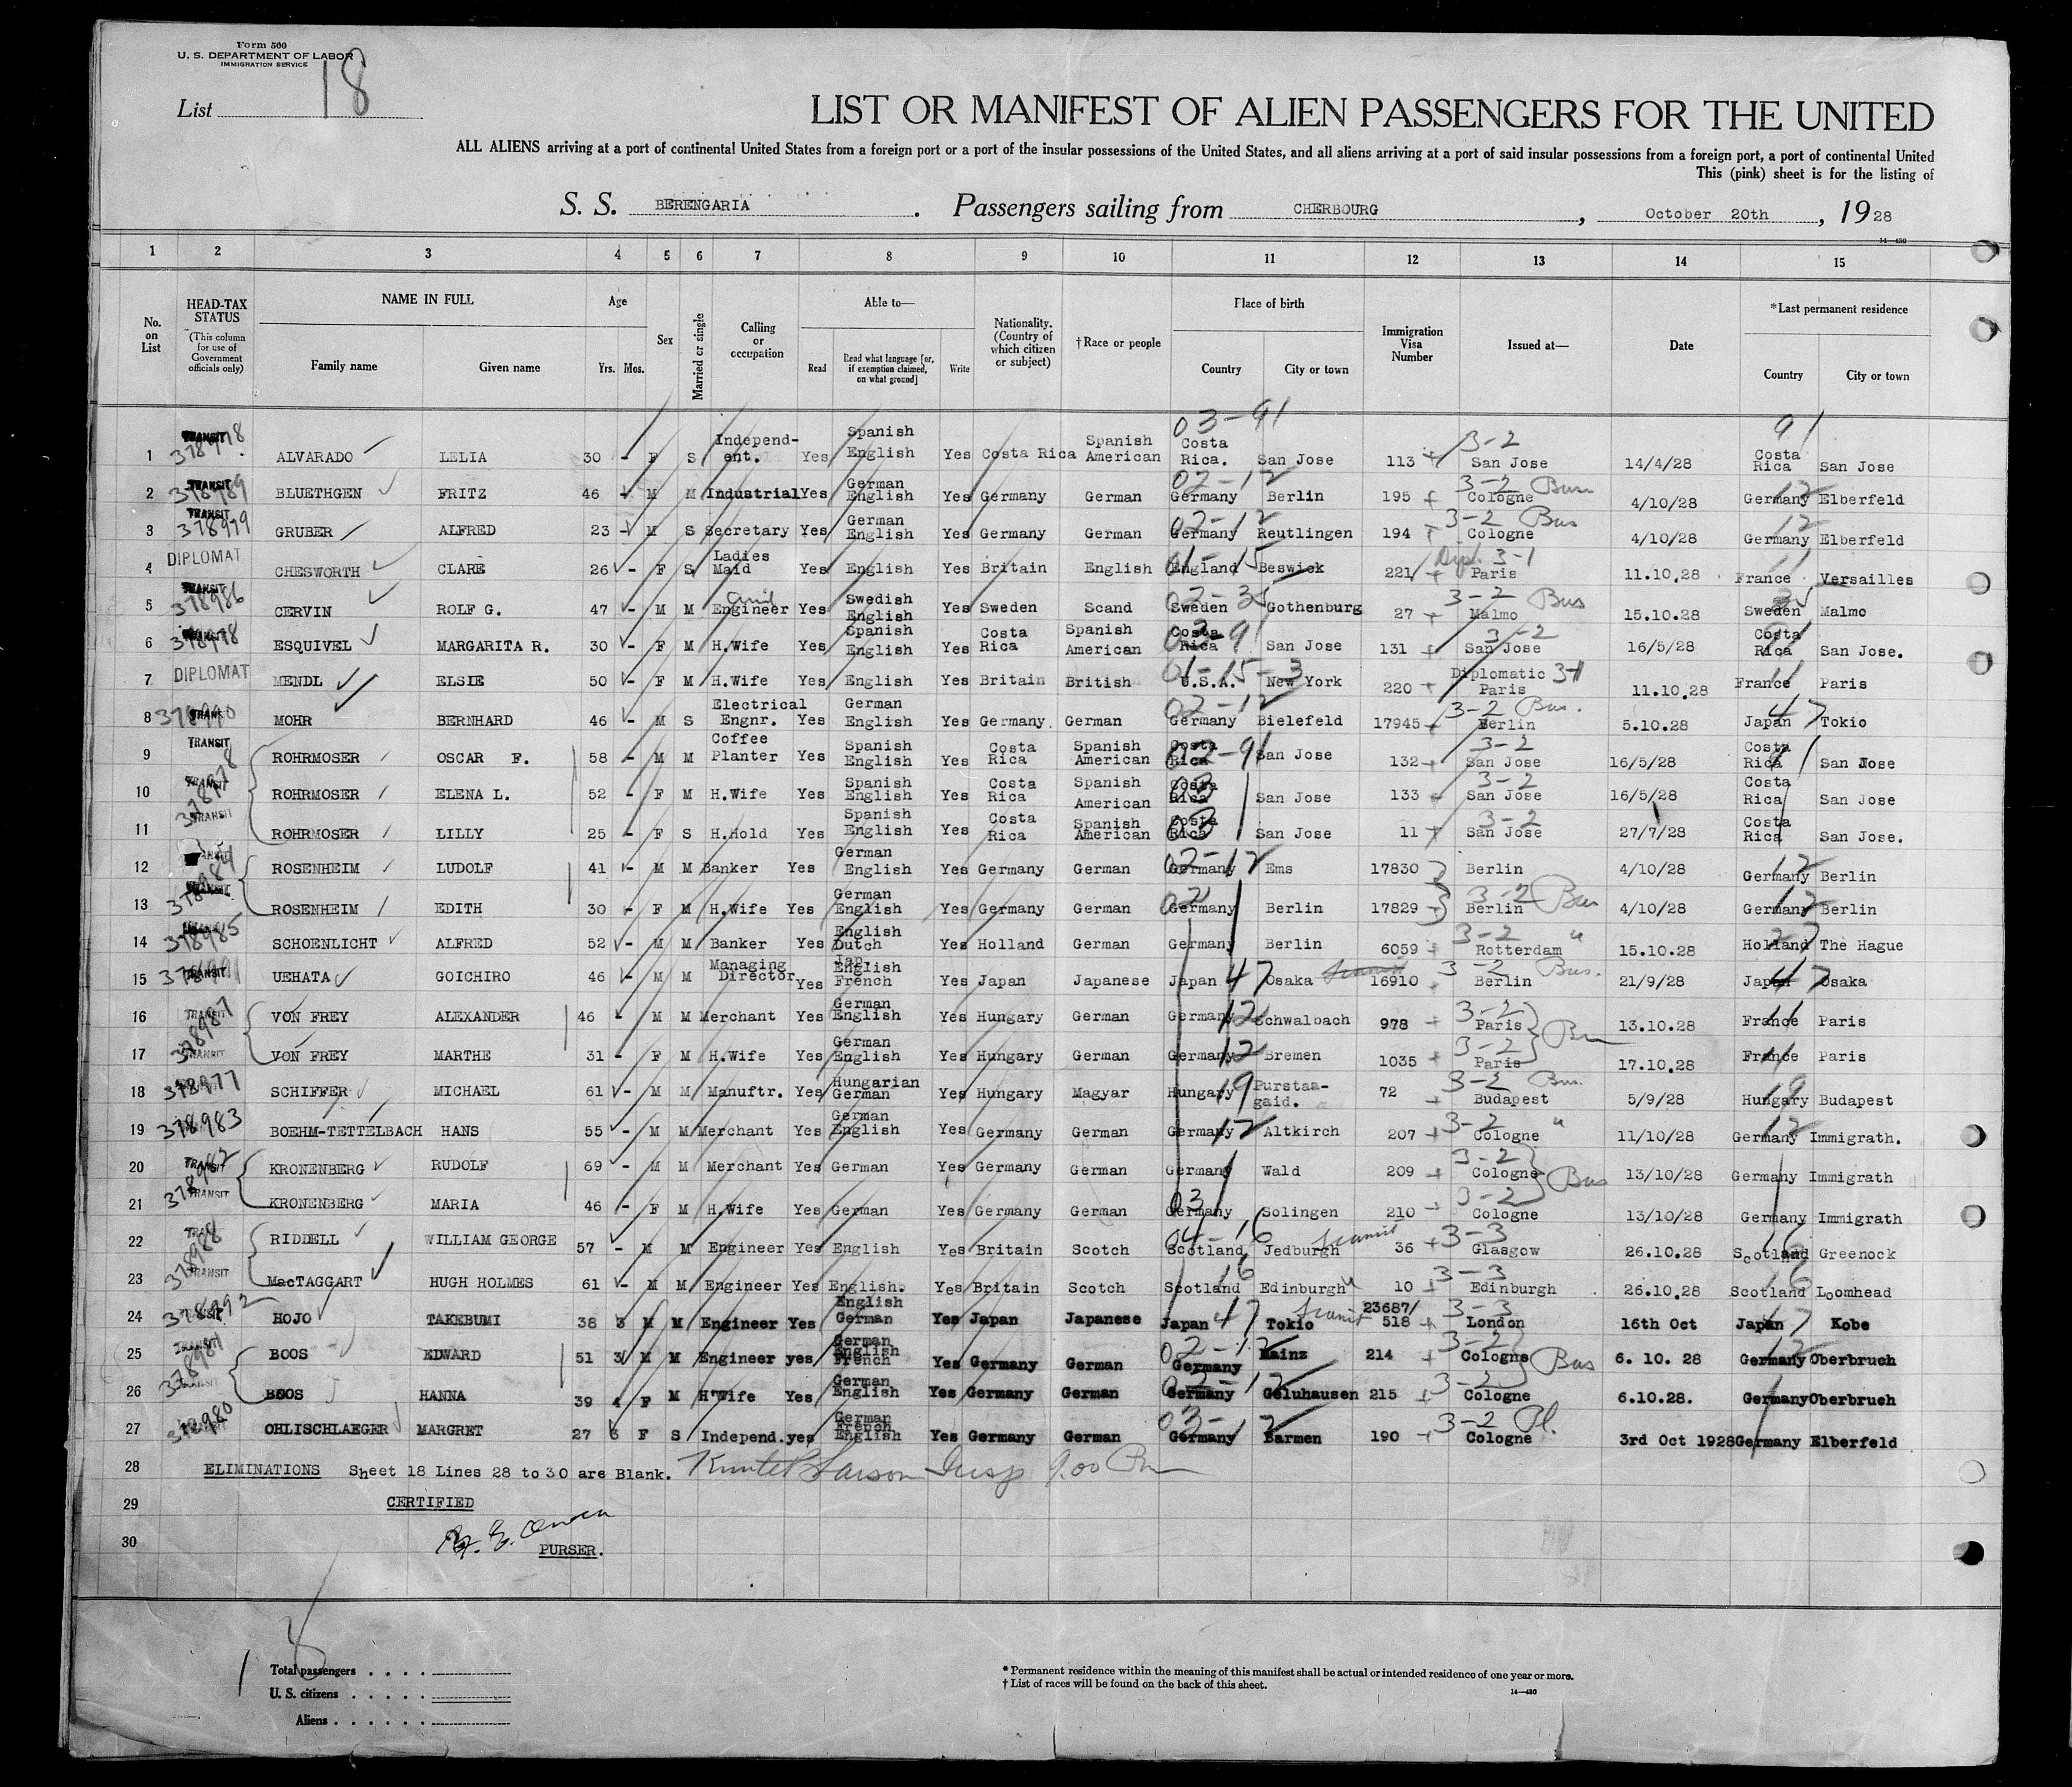 Form 500
U. S. DEPARTMENT OF LABOR
IMMIGRATION SERVICE
List 18
LIST OR MANIFEST OF ALIEN PASSENGERS FOR THE UNITED
ALL ALIENS arriving at a port of continental United States from a foreign port or a port of the insular possessions of the United States, and all aliens arriving at a port of said insular possessions from a foreign port, a port of continental United
This (pink) sheet is for the listing of
S. S. BERENGARIA. Passengers sailing from CHERBOURG, October 20th, 1928
14—430
1 2 3 4 5 6 7 8 9 10 11 12 13 14 15
No. on List HEAD-TAX STATUS (This column for use of Government officials only) NAME IN FULL Family name Given name Age Yrs. Mos. Sex Married or single Calling or occupation Able to— Read Read what language [or, if exemption claimed, on what ground] Write Nationality. (Country of which citizen or subject) †Race or people Place of birth Country City or town Immigration Visa Number Issued at— Date *Last permanent residence Country City or town
03-91 91
1 TRANSIT 378978 ALVARADO LELIA 30 - F S Independent. Yes Spanish English Yes Costa Rica Spanish American Costa Rica. San Jose 113 3-2 San Jose 14/4/28 Costa Rica San Jose
2 TRANSIT 378989 BLUETHGEN FRITZ 46 - M M Industrial Yes German English Yes Germany German 02-12 Germany Berlin 195 3-2 Bus Cologne 4/10/28 Germany 12 Elberfeld
3 TRANSIT 378979 GRUBER ALFRED 23 - M S Secretary Yes German English Yes Germany German 02-12 Germany Reutlingen 194 3-2 Bus Cologne 4/10/28 Germany 12 Elberfeld
4 DIPLOMAT CHESWORTH CLARE 26 - F S Ladies Maid Yes English Yes Britain English 01-15 England Beswick 221 Dipl. 3-1 Paris 11.10.28 France 11 Versailles
5 TRANSIT 378986 CERVIN ROLF G. 47 - M M Civil Engineer Yes Swedish English Yes Sweden Scand 02-35 Sweden Gothenburg 27 3-2 Bus Malmo 15.10.28 Sweden Malmo
6 TRANSIT 378978 ESQUIVEL MARGARITA R. 30 - F M H.Wife Yes Spanish English Yes Costa Rica Spanish American 03-91 Costa Rica San Jose 131 3-2 San Jose 16/5/28 Costa Rica 91 San Jose.
7 DIPLOMAT MENDL ELSIE 50 - F M H.Wife Yes English Yes Britain British 01-15-3 U.S.A. New York 220 Diplomatic 3-1 Paris 11.10.28 France 11 Paris
8 TRANSIT 378990 MOHR BERNHARD 46 - M S Electrical Engnr. Yes German English Yes Germany. German 02-12 Germany Bielefeld 17945 3-2 Bus. Berlin 5.10.28 Japan 47 Tokio
9 TRANSIT ROHRMOSER OSCAR F. 58 - M M Coffee Planter Yes Spanish English Yes Costa Rica Spanish American 02-91 Costa Rica San Jose 132 3-2 San Jose 16/5/28 Costa Rica 91 San Jose
10 TRANSIT 378978 ROHRMOSER ELENA L. 52 - F M H.Wife Yes Spanish English Yes Costa Rica Spanish American 03 Costa Rica San Jose 133 3-2 San Jose 16/5/28 Costa Rica San Jose
11 TRANSIT ROHRMOSER LILLY 25 - F S H.Hold Yes Spanish English Yes Costa Rica Spanish American 03 Costa Rica San Jose 11 3-2 San Jose 27/7/28 Costa Rica San Jose.
12 TRANSIT ROSENHEIM LUDOLF 41 - M M Banker Yes German English Yes Germany German 02-12 Germany Ems 17830 Berlin 4/10/28 Germany 12 Berlin
13 TRANSIT ROSENHEIM EDITH 30 - F M H.Wife Yes German English Yes Germany German 02 Germany Berlin 17829 3-2 Bus Berlin 4/10/28 Germany 12 Berlin
14 378985 SCHOENLICHT ALFRED 52 - M M Banker Yes English Dutch Yes Holland German Germany Berlin 6059 3-2 " Rotterdam 15.10.28 Holland 27 The Hague
15 TRANSIT 378991 UEHATA GOICHIRO 46 - M M Managing Director Yes Jap. English French Yes Japan Japanese Japan 47 Osaka 16910 3-2 Bus. Berlin 21/9/28 Japan 47 Osaka
16 TRANSIT 378987 VON FREY ALEXANDER 46 - M M Merchant Yes German English Yes Hungary German Germany 12 Schwalbach 978 3-2 Paris Bus 13.10.28 France 11 Paris
17 TRANSIT VON FREY MARTHE 31 - F M H.Wife Yes German English Yes Hungary German Germany 12 Bremen 1035 3-2 Paris 17.10.28 France 11 Paris
18 378977 SCHIFFER MICHAEL 61 - M M Manuftr. Yes Hungarian German Yes Hungary Magyar Hungary 19 Purstaa-gaid. 72 3-2 Bus. Budapest 5/9/28 Hungary 19 Budapest
19 378983 BOEHM-TETTELBACH HANS 55 - M M Merchant Yes German English Yes Germany German Germany 12 Altkirch 207 3-2 " Cologne 11/10/28 Germany 12 Immigrath.
20 TRANSIT 378982 KRONENBERG RUDOLF 69 - M M Merchant Yes German Yes Germany German Germany Wald 209 3-2 Cologne Bus 13/10/28 Germany Immigrath
21 TRANSIT KRONENBERG MARIA 46 - F M H.Wife Yes German Yes Germany German 03 Germany Solingen 210 3-2 Cologne 13/10/28 Germany Immigrath
22 TRANSIT 378988 RIDDELL WILLIAM GEORGE 57 - M M Engineer Yes English Yes Britain Scotch 04-16 Scotland Jedburgh Transit 36 3-3 Glasgow 26.10.28 Scotland 16 Greenock
23 TRANSIT MacTAGGART HUGH HOLMES 61 - M M Engineer Yes English. Yes Britain Scotch Scotland 16 Edinburgh " 10 3-3 Edinburgh 26.10.28 Scotland 16 Loomhead
24 378992 HOJO TAKEBUMI 38 3 M M Engineer Yes English German Yes Japan Japanese Japan 47 Tokio Transit 23687/518 3-3 London 16th Oct Japan 47 Kobe
25 TRANSIT 378981 BOOS EDWARD 51 3 M M Engineer yes German English French Yes Germany German 02-12 Germany Mainz 214 3-2 Cologne Bus 6. 10. 28 Germany 12 Oberbruch
26 TRANSIT BOOS HANNA 39 4 F M H'Wife Yes German English Yes Germany German 02-12 Germany Geluhausen 215 3-2 Cologne 6.10.28. Germany Oberbruch
27 378980 OHLISCHLAEGER MARGRET 27 6 F S Independ. yes German French English Yes Germany German 03-12 Germany Barmen 190 3-2 Pl. Cologne 3rd Oct 1928 Germany Elberfeld
28 ELIMINATIONS Sheet 18 Lines 28 to 30 are Blank. Larson Insp 9.00 Pm
29 CERTIFIED
30 PURSER.
Total passengers . . . .
U. S. citizens . . . . .
Aliens . . . . . .
* Permanent residence within the meaning of this manifest shall be actual or intended residence of one year or more.
† List of races will be found on the back of this sheet.
14—430